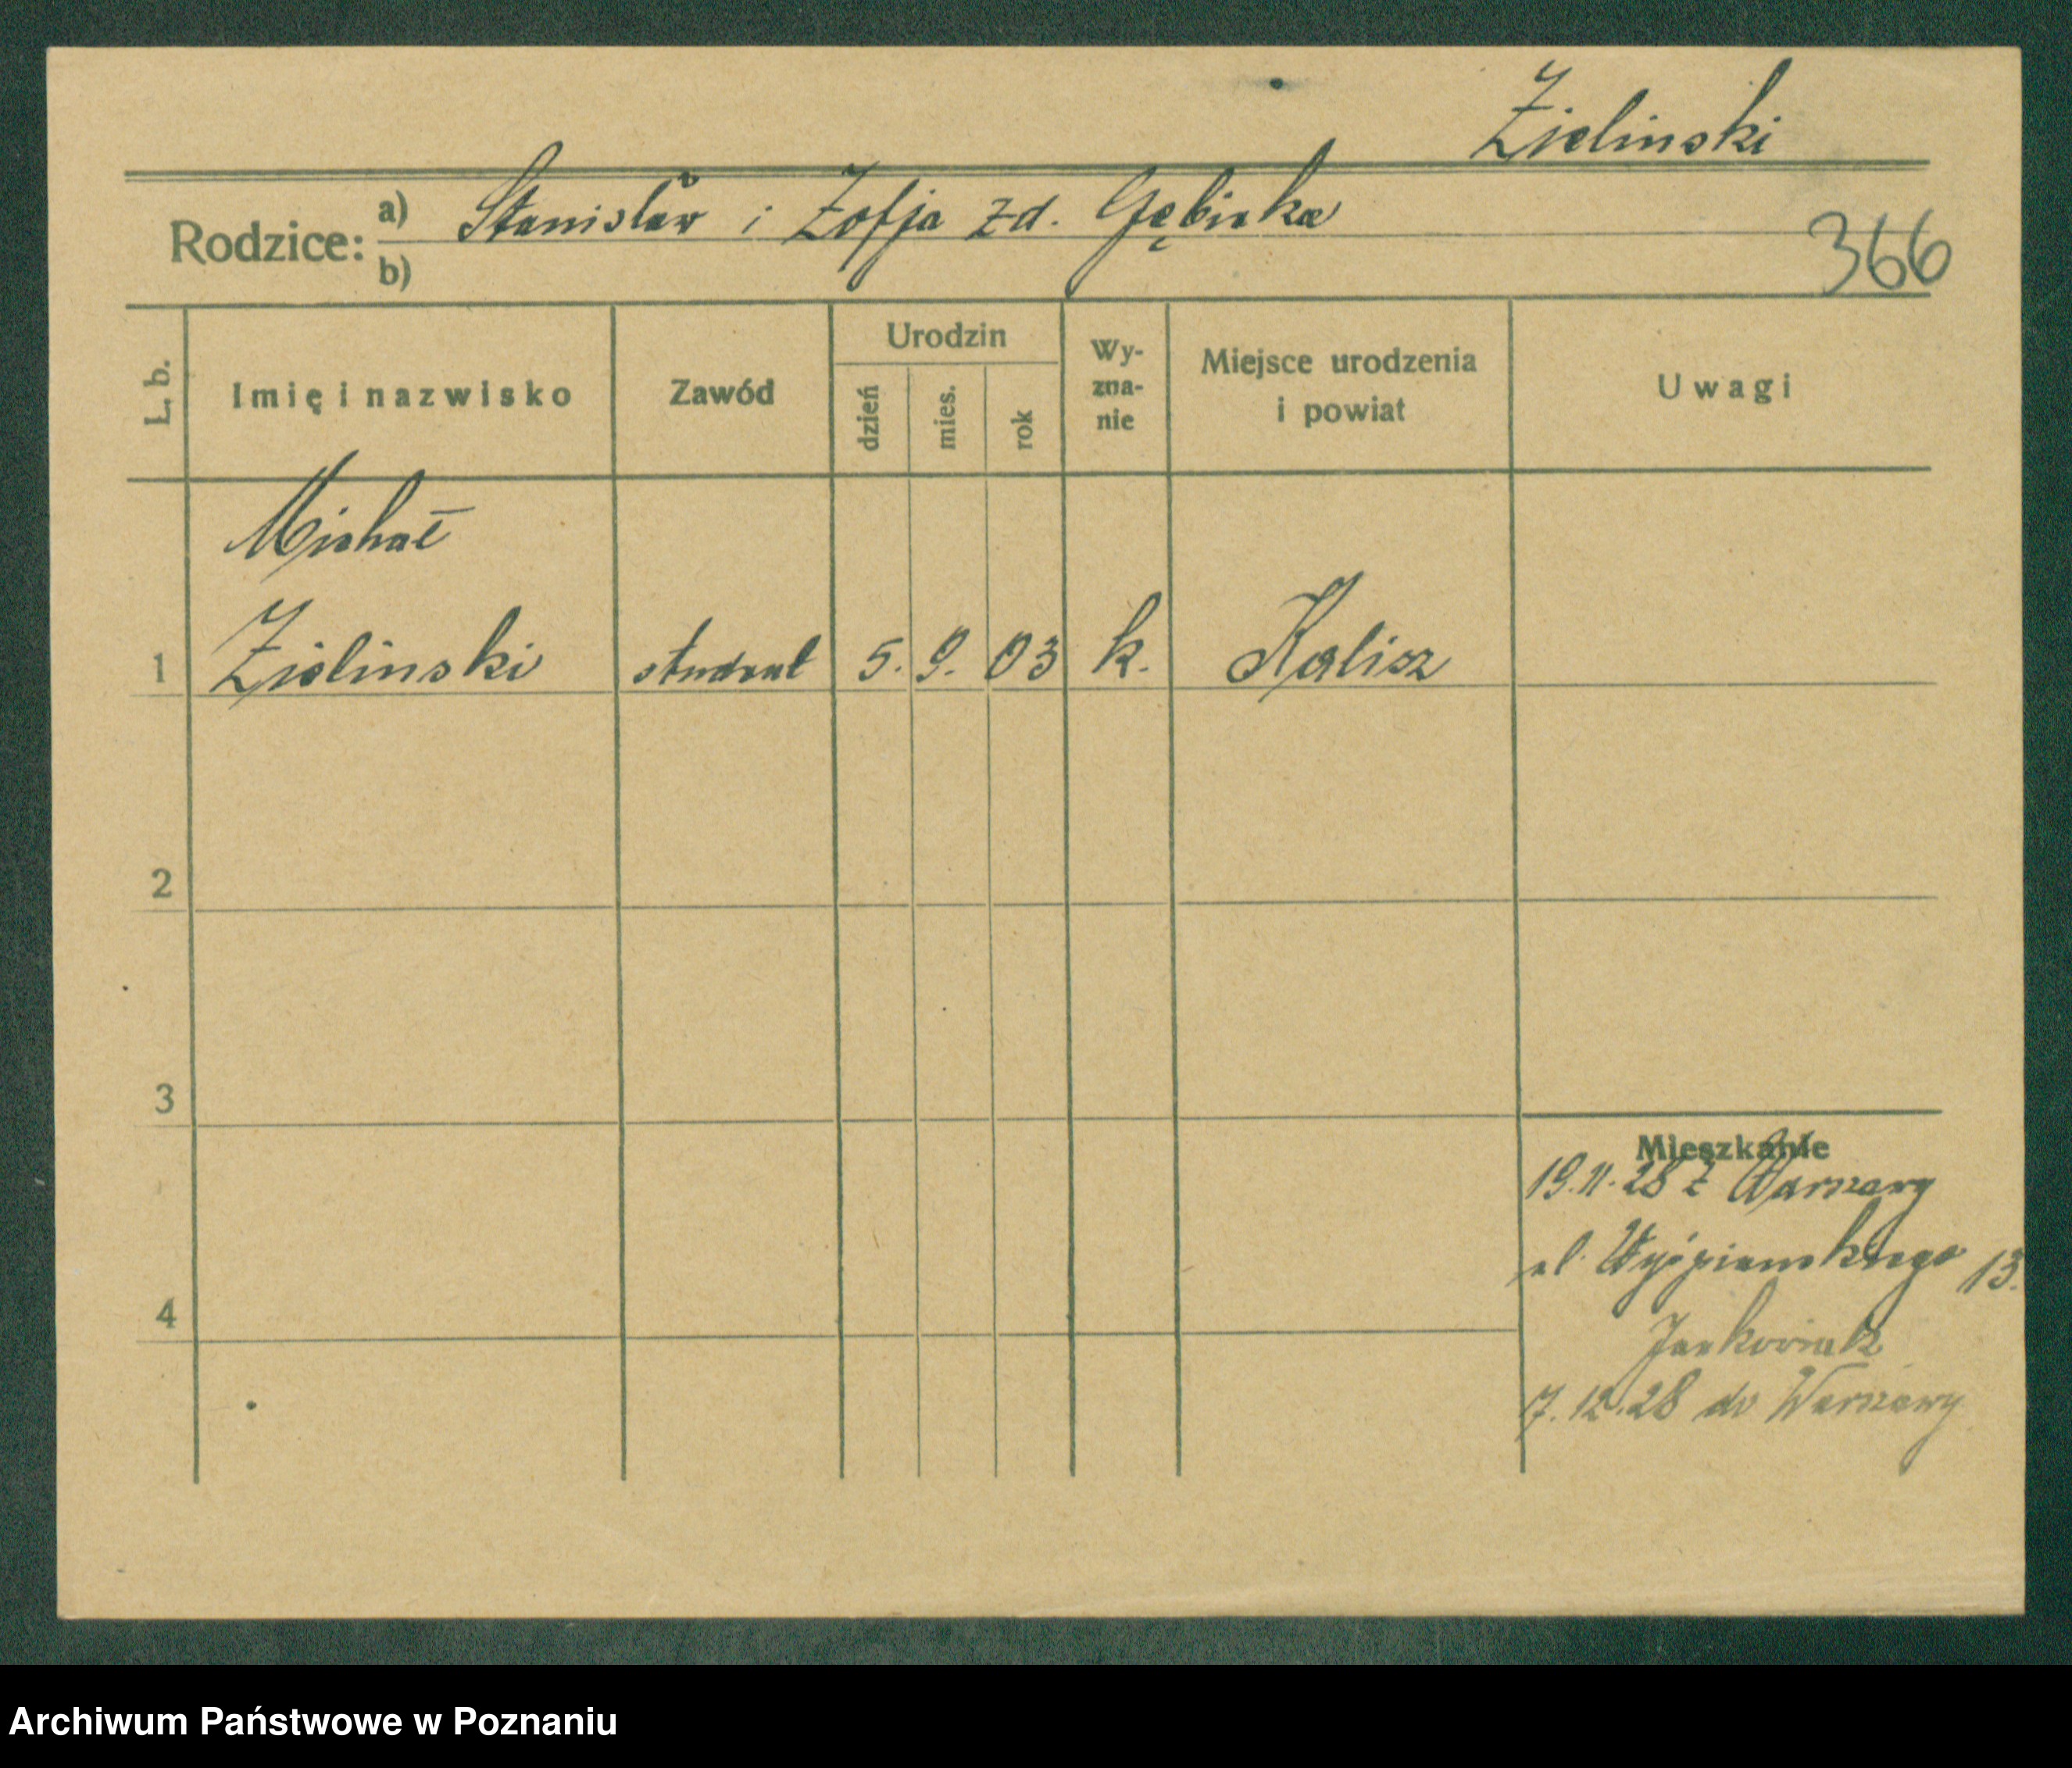 Zielinski
Rodzice: a) Stanisław i Zofja zd. Gębicka
b)
366
L. b. Imię i nazwisko Zawód Urodzin dzień mies. rok Wy-zna-nie Miejsce urodzenia i powiat Uwagi
Michał
1 Zielinski student 5. 9. 03 k. Kalisz
2
3
Mieszkanie
19.11.28 z Warszawy
ul. Wyśpianskiego 13.
4
Jankowiak
7.12.28 do Warszawy
Archiwum Państwowe w Poznaniu